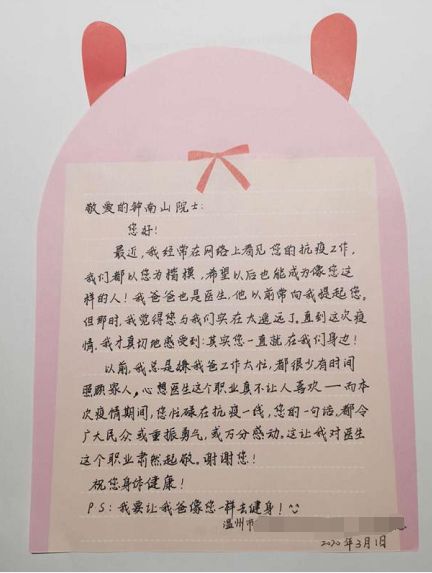 敬爱的钟南山院士:
您好!
最近,我经常在网络上看见您的抗疫工作,
我们都以您为楷模,希望以后也能成为像您这
样的人!我爸爸也是医生,他以前常向我提起您。
但那时,我觉得您与我们实在太遥远了。直到这次疫
情,我才真切地感受到:其实您一直就在我们身边!
以前,我总是嫌我爸工作太忙,都很少有时间
照顾家人,心想医生这个职业真不让人喜欢——而本
次疫情期间,您忙碌在抗疫一线,您的一句话,都令
广大民众或重振勇气,或万分感动,这让我对医生
这个职业肃然起敬。谢谢您!
祝您身体健康!
PS:我要让我爸像您一样去健身!
温州市
2020年3月1日